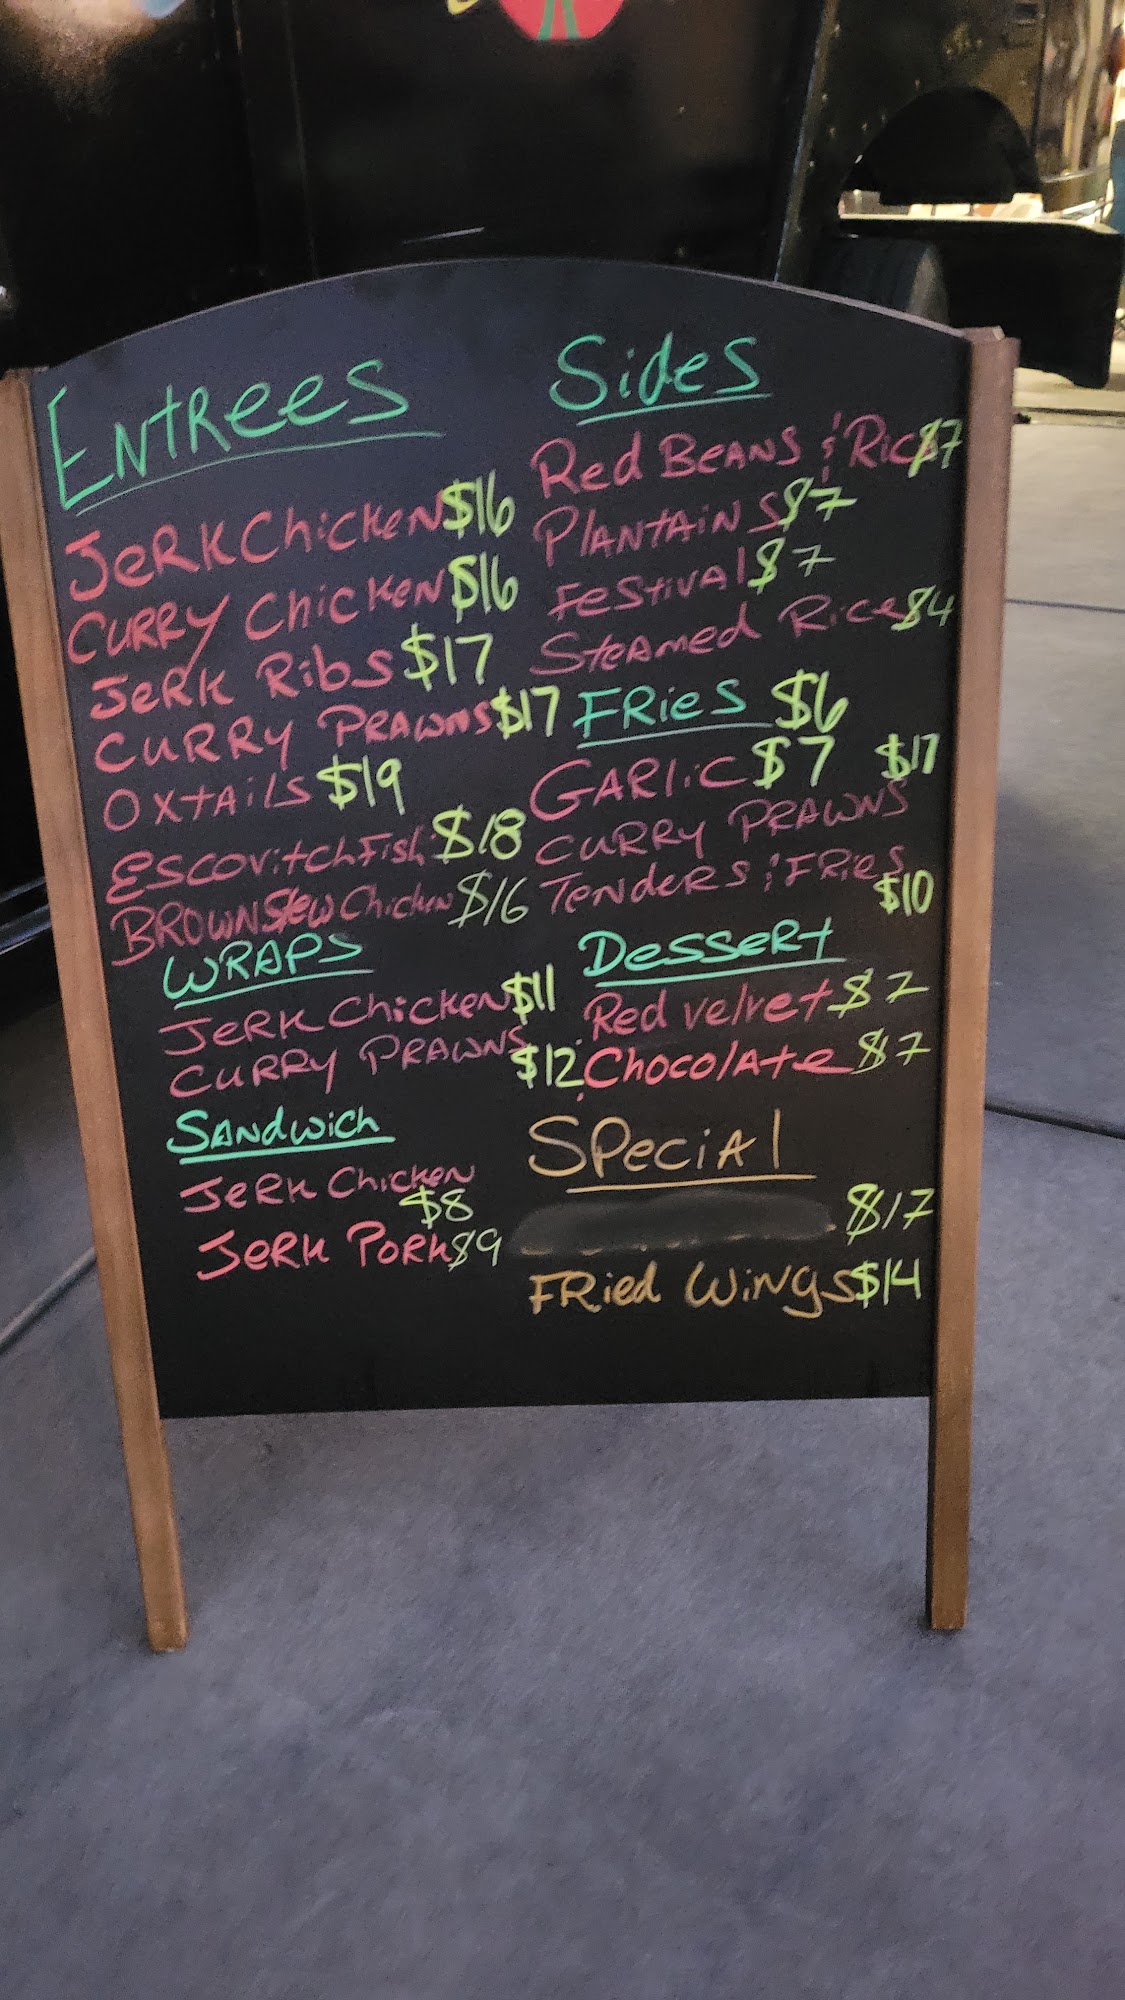 Entrees
Jerk Chicken $16
Curry Chicken $16
Jerk Ribs $17
Curry Prawns $17
Oxtails $19
Escovitch Fish $18
Brown Stew Chicken $16
Wraps
Jerk Chicken $11
Curry Prawns $12
Sandwich
Jerk Chicken
$8
Jerk Pork $9
Sides
Red Beans & Rice $7
Plantains $7
Festival $7
Steamed Rice $4
Fries $6
Garlic $7
$17
Curry Prawns
Tenders & Fries
$10
Dessert
Red velvet $7
Chocolate $7
Special
$17
Fried Wings $14